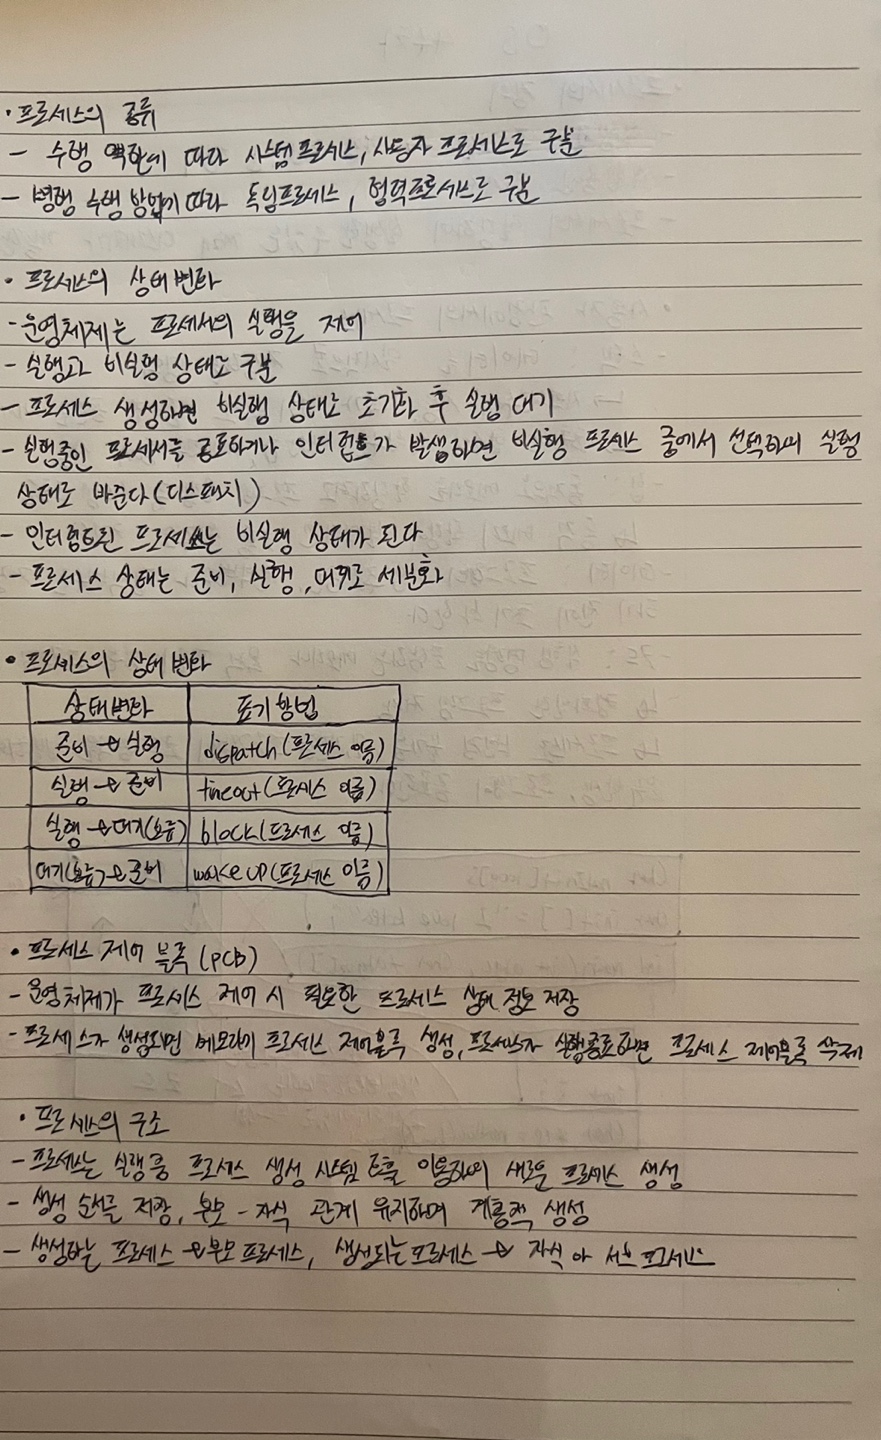 • 프로세스의 종류
- 수행 역할에 따라 시스템프로세스, 사용자 프로세스로 구분
- 병행 수행 방법에 따라 독립프로세스, 협력프로세스로 구분
• 프로세스의 상태 변화
- 운영체제는 프로세서의 실행을 제어
- 실행과 비실행 상태로 구분
- 프로세스 생성하면 비실행 상태로 초기화 후 실행 대기
- 실행중인 프로세서를 종료하거나 인터럽트가 발생하면 비실행 프로세스 중에서 선택하여 실행
상태로 바꾼다(디스패치)
- 인터럽트된 프로세스는 비실행 상태가 된다
- 프로세스 상태는 준비, 실행, 대기로 세분화
• 프로세스의 상태 변화
상태변화 표기 방법
준비 → 실행 dispatch(프로세스 이름)
실행 → 준비 timeout(프로세스 이름)
실행 → 대기(보류) block(프로세스 이름)
대기(보류) → 준비 wake up(프로세스 이름)
• 프로세스 제어 블록(PCB)
- 운영체제가 프로세스 제어 시 필요한 프로세스 상태 정보 저장
- 프로세스가 생성되면 메모리에 프로세스 제어블록 생성, 프로세스가 실행종료하면 프로세스 제어블록 삭제
• 프로세스의 구조
- 프로세스는 실행중 프로세스 생성 시스템 호출 이용하여 새로운 프로세스 생성
- 생성 순서를 저장, 부모 - 자식 관계 유지하여 계층적 생성
- 생성하는 프로세스 → 부모 프로세스, 생성되는 프로세스 → 자식 or 서브 프로세스